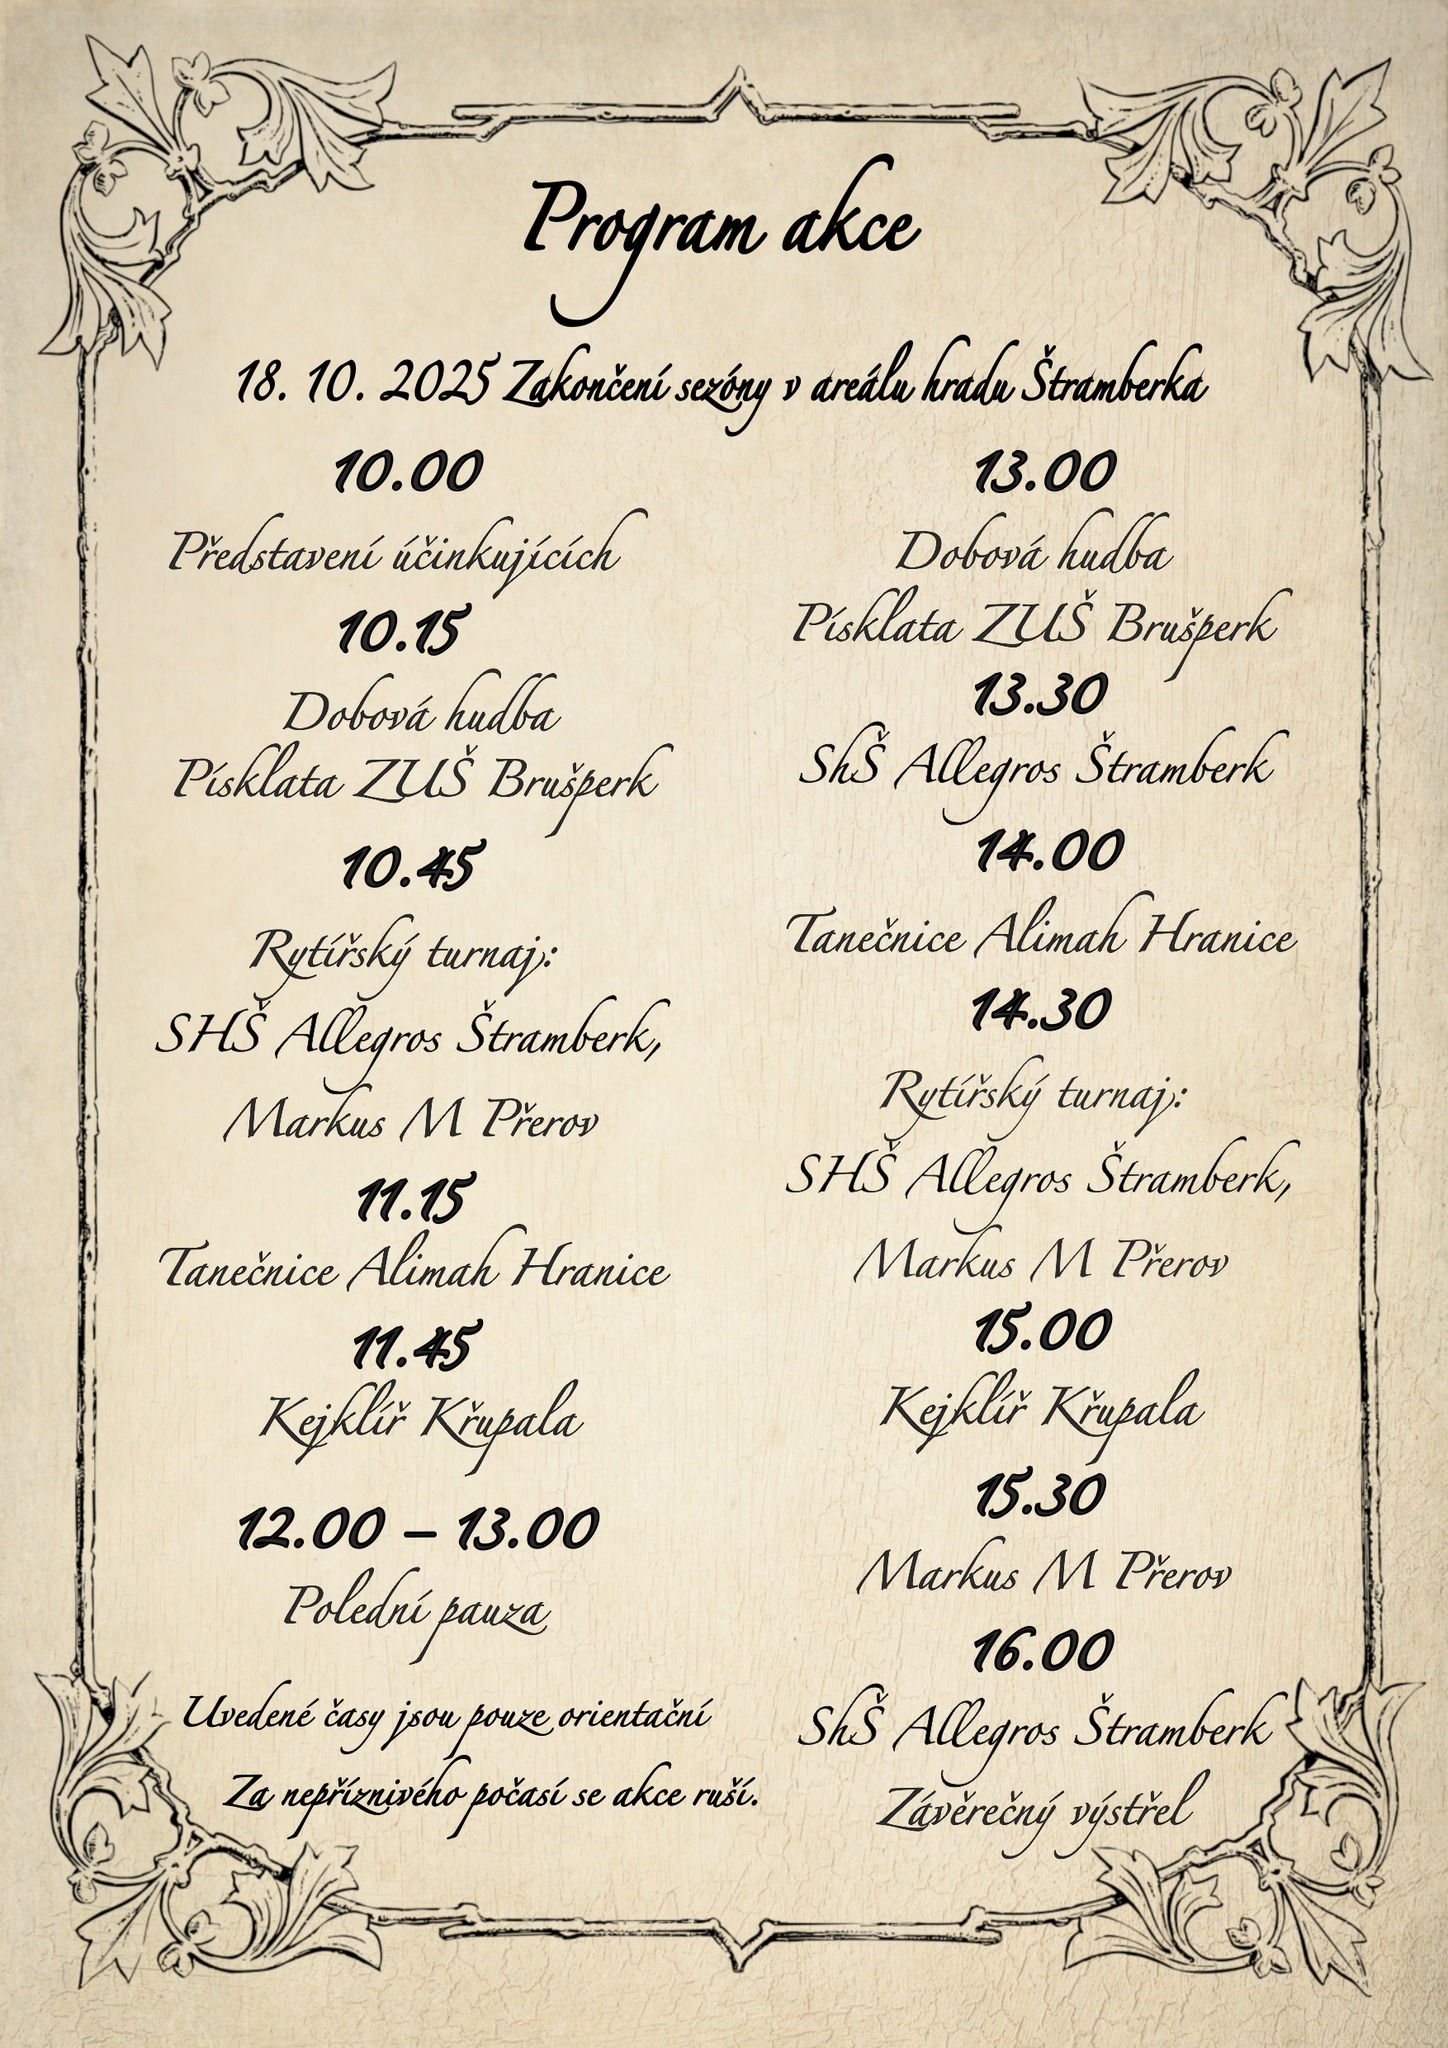 Program akce
18. 10. 2025 Zakončení sezóny v areálu hradu Štramberka
10.00
Představení účinkujících
10.15
Dobová hudba
Písklata ZUŠ Brušperk
10.45
Rytířský turnaj:
SHŠ Allegros Štramberk,
Markus M Přerov
11.15
Tanečnice Alimah Hranice
11.45
Kejklíř Křupala
12.00 – 13.00
Polední pauza
Uvedené časy jsou pouze orientační
Za nepříznivého počasí se akce ruší.
13.00
Dobová hudba
Písklata ZUŠ Brušperk
13.30
ShŠ Allegros Štramberk
14.00
Tanečnice Alimah Hranice
14.30
Rytířský turnaj:
SHŠ Allegros Štramberk,
Markus M Přerov
15.00
Kejklíř Křupala
15.30
Markus M Přerov
16.00
ShŠ Allegros Štramberk
Závěrečný výstřel